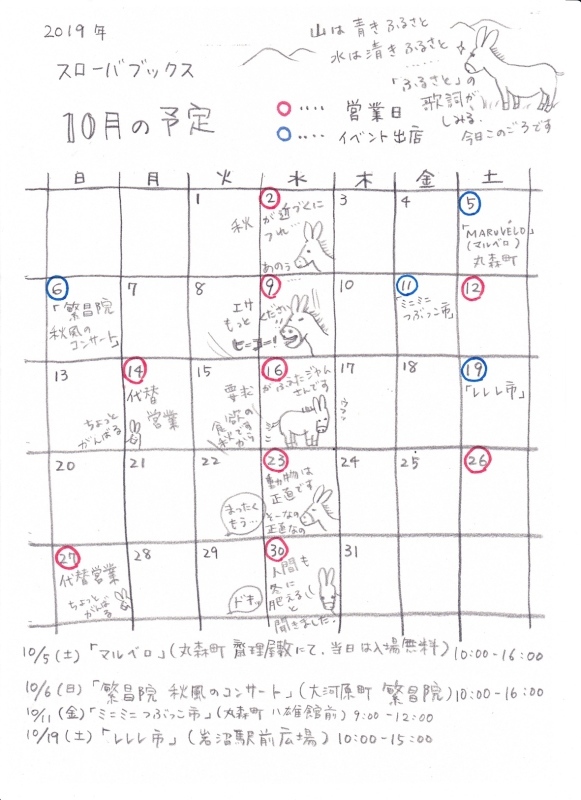 2019年
スローバブックス
10月の予定
山は青きふるさと
水は清きふるさと
......
「ふるさと」の
歌詞が
しみる、
今日このごろです
○‥‥ 営業日
○‥‥ イベント出店
日 月 火 水 木 金 土
1 2 3 4 5
秋が近づくに
つれ…
あのぅ
「MARUVELO」
(マルベロ)
丸森町
6 7 8 9 10 11 12
「繁昌院
秋風の
コンサート」
エサ
もっとください
ヒーコー!
「ミニミニ
つぶっこ市」
13 14 15 16 17 18 19
ちょっと
がんばる
代替
営業
要求
がふえたジャム
さんです
食欲の
秋ですから
「レレレ市」
20 21 22 23 24 25 26
まったく
もう…
動物は
正直です
そーなの
正直なの
27 28 29 30 31
代替営業
ちょっと
がんばる
ドキッ
人間も
冬に
肥える
と
聞きました。
10/5(土)「マルベロ」(丸森町 齋理屋敷にて、当日は入場無料) 10:00-16:00
10/6(日)「繁昌院 秋風のコンサート」(大河原町 繁昌院) 10:00-16:00
10/11(金)「ミニミニつぶっこ市」(丸森町 八雄館前) 9:00-12:00
10/19(土)「レレレ市」(岩沼駅前広場) 10:00-15:00